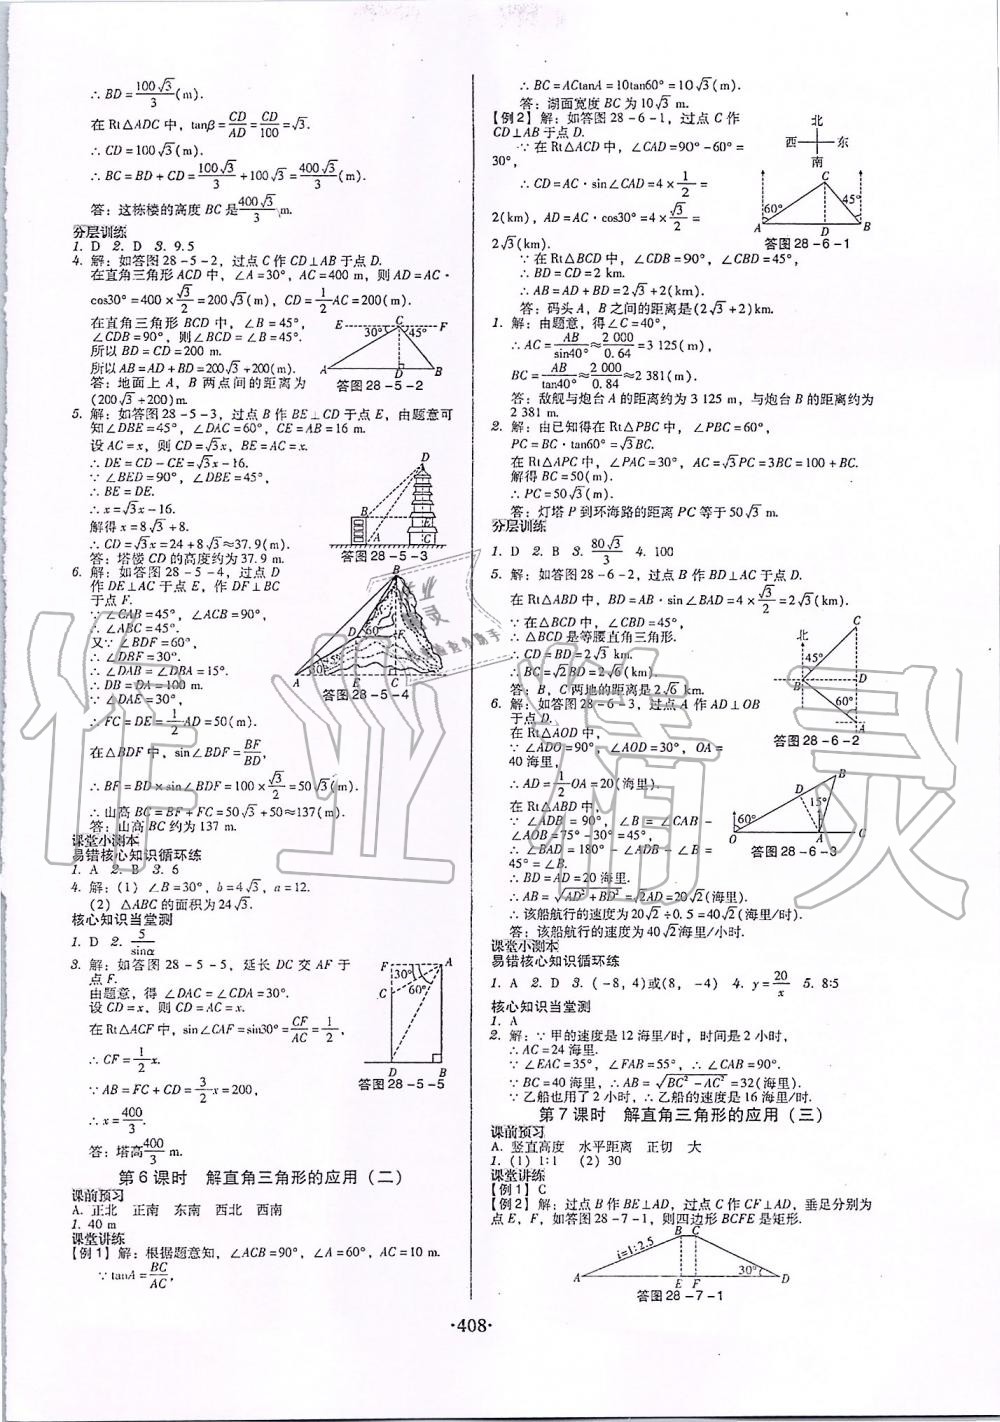 ∴BD=100√3/3(m).
在Rt△ADC中，tanβ=CD/AD=CD/100=√3.
∴CD=100√3(m).
∴BC=BD+CD=100√3/3+100√3=400√3/3(m).
答：这栋楼的高度BC是400√3/3 m.
分层训练
1. D  2. D  3. 9.5
4. 解：如答图28-5-2，过点C作CD⊥AB于点D.
在直角三角形ACD中，∠A=30°，AC=400 m，则AD=AC·
cos30°=400×√3/2=200√3(m)，CD=1/2AC=200(m).
在直角三角形BCD中，∠B=45°，
∠CDB=90°，则∠BCD=∠B=45°.
所以BD=CD=200 m.
所以AB=AD+BD=200√3+200(m).
答：地面上A，B两点间的距离为
(200√3+200)m.
E F C 30° 45° A D B
答图28-5-2
5. 解：如答图28-5-3，过点B作BE⊥CD于点E，由题意可
知∠DBE=45°，∠DAC=60°，CE=AB=16 m.
设AC=x，则CD=√3x，BE=AC=x.
∴DE=CD-CE=√3x-16.
∵∠BED=90°，∠DBE=45°，
∴BE=DE.
∴x=√3x-16.
解得x=8√3+8.
∴CD=√3x=24+8√3≈37.9(m).
答：塔楼CD的高度约为37.9 m.
D B E A C
答图28-5-3
6. 解：如答图28-5-4，过点D
作DE⊥AC于点E，作DF⊥BC
于点F.
∵∠CAB=45°，∠ACB=90°，
∴∠ABC=45°.
又∵∠BDF=60°，
∴∠DBF=30°.
∴∠DAB=∠DBA=15°.
∴DB=DA=100 m.
∵∠DAE=30°，
∴FC=DE=1/2AD=50(m).
在△BDF中，sin∠BDF=BF/BD，
∴BF=BD×sin∠BDF=100×√3/2=50√3(m).
∴山高BC=BF+FC=50√3+50≈137(m).
答：山高BC约为137 m.
B D 60° F A 30° E C
答图28-5-4
课堂小测本
易错核心知识循环练
1. A  2. B  3. 6
4. 解：(1) ∠B=30°，b=4√3，a=12.
(2) △ABC的面积为24√3.
核心知识当堂测
1. D  2. 5/sinα
3. 解：如答图28-5-5，延长DC交AF于
点F.
由题意，得∠DAC=∠CDA=30°.
设CD=x，则CD=AC=x.
在Rt△ACF中，sin∠CAF=sin30°=CF/AC=1/2，
∴CF=1/2x.
∵AB=FC+CD=3/2x=200，
∴x=400/3.
答：塔高400/3 m.
F A 30° 60° C D B
答图28-5-5
第6课时 解直角三角形的应用（二）
课前预习
A. 正北 正南 东南 西北 西南
1. 40 m
课堂讲练
【例1】解：根据题意知，∠ACB=90°，∠A=60°，AC=10 m.
∵tanA=BC/AC，
∴BC=ACtanA=10tan60°=10√3(m).
答：湖面宽度BC为10√3 m.
【例2】解：如答图28-6-1，过点C作
CD⊥AB于点D.
∵在Rt△ACD中，∠CAD=90°-60°=
30°，
∴CD=AC·sin∠CAD=4×1/2=
2(km)，AD=AC·cos30°=4×√3/2=
2√3(km).
∵在Rt△BCD中，∠CDB=90°，∠CBD=45°，
∴BD=CD=2 km.
∴AB=AD+BD=2√3+2(km).
答：码头A，B之间的距离是(2√3+2)km.
北 西 东 南
C 60° 45° A D B
答图28-6-1
1. 解：由题意，得∠C=40°，
∴AC=AB/sin40°≈2 000/0.64=3 125(m)，
BC=AB/tan40°≈2 000/0.84≈2 381(m).
答：敌舰与炮台A的距离约为3 125 m，与炮台B的距离约为
2 381 m.
2. 解：由已知得在Rt△PBC中，∠PBC=60°，
PC=BC·tan60°=√3BC.
在Rt△APC中，∠PAC=30°，AC=√3PC=3BC=100+BC.
解得BC=50(m).
∴PC=50√3(m).
答：灯塔P到环海路的距离PC等于50√3 m.
分层训练
1. D  2. B  3. 80√3/3  4. 100
5. 解：如答图28-6-2，过点B作BD⊥AC于点D.
在Rt△ABD中，BD=AB·sin∠BAD=4×√3/2=2√3(km).
∵在△BCD中，∠CBD=45°，
∴△BCD是等腰直角三角形.
∴CD=BD=2√3(km).
∴BC=√2BD=2√6(km).
答：B，C两地的距离是2√6 km.
北 C 45° B D 60° A
答图28-6-2
6. 解：如答图28-6-3，过点A作AD⊥OB
于点D.
在Rt△AOD中，
∵∠ADO=90°，∠AOD=30°，OA=
40海里，
∴AD=1/2OA=20(海里).
在Rt△ABD中，
∵∠ADB=90°，∠B=∠CAB-
∠AOB=75°-30°=45°，
∴∠BAD=180°-∠ADB-∠B=
45°=∠B.
∴BD=AD=20海里.
∴AB=√(AD²+BD²)=√2AD=20√2(海里).
∴该船航行的速度为20√2÷0.5=40√2(海里/时).
答：该船航行的速度为40√2海里/时.
B D 15° 60° O A C
答图28-6-3
课堂小测本
易错核心知识循环练
1. A  2. D  3. (-8，4)或(8，-4)  4. y=20/x  5. 8:5
核心知识当堂测
1. A
2. 解：∵甲的速度是12海里/时，时间是2小时，
∴AC=24海里.
∵∠EAC=35°，∠FAB=55°，∴∠CAB=90°.
∵BC=40海里，∴AB=√(BC²-AC²)=32(海里).
∵乙船也用了2小时，∴乙船的速度是16海里/时.
第7课时 解直角三角形的应用（三）
课前预习
A. 竖直高度 水平距离 正切 大
1. (1) 1:1  (2) 30
课堂讲练
【例1】C
【例2】解：过点B作BE⊥AD，过点C作CF⊥AD，垂足分别为
点E，F，如答图28-7-1，则四边形BCFE是矩形.
B C i=1:2.5 30° A E F D
答图28-7-1
·408·
作业精灵